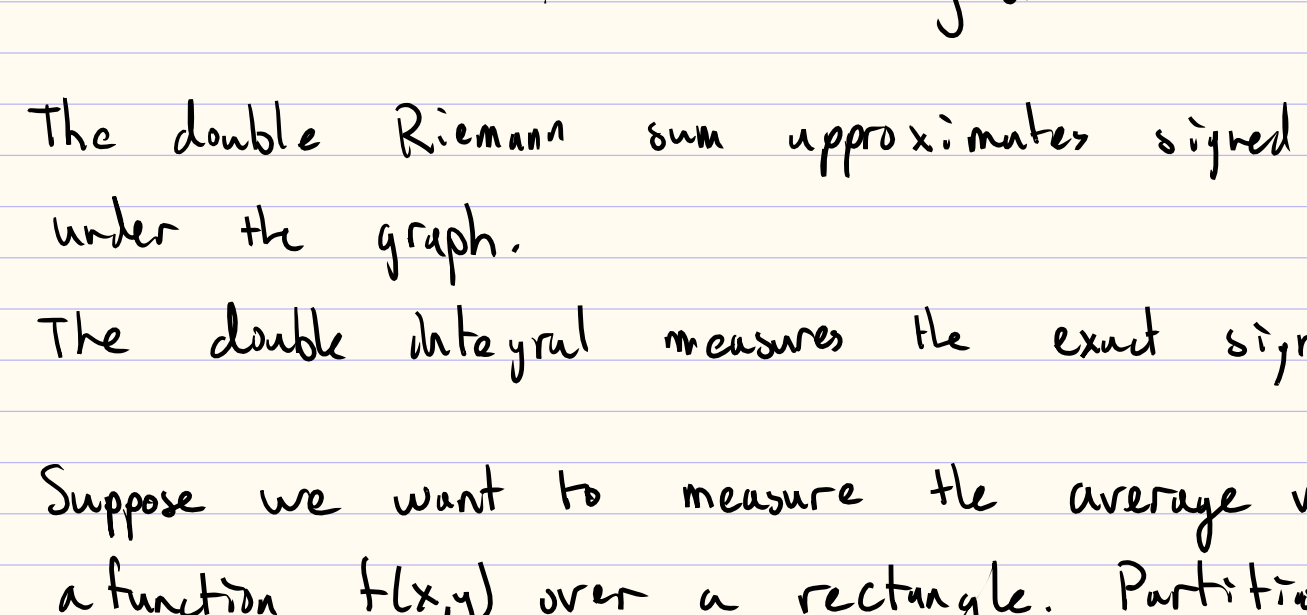 The double Riemann sum approximates signed
under the graph.
The double integral measures the exact
Suppose we want to measure the average
a function f(x,y) over a rectangle.